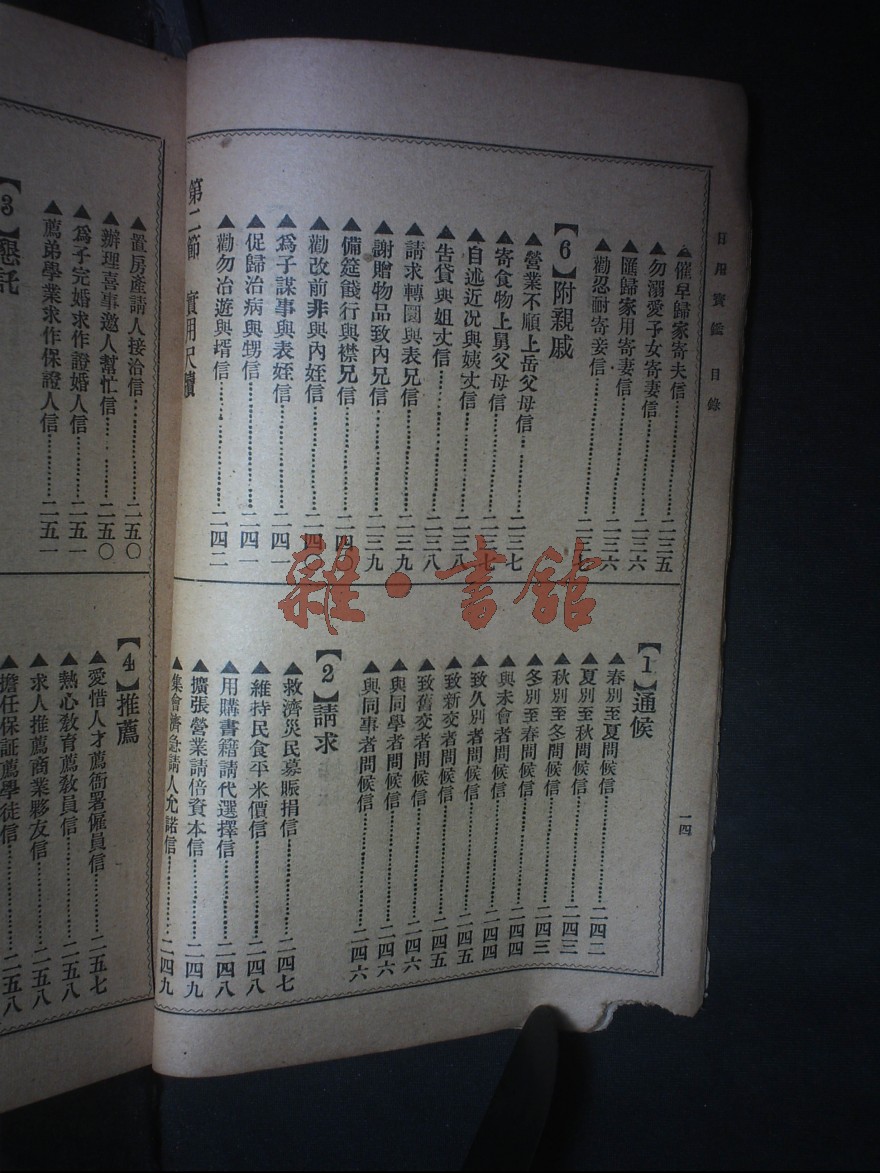 日用寶鑑 目錄
一四
▲催早歸家寄夫信…………二三五
▲勿溺愛子女寄妻信…………二三六
▲匯歸家用寄妻信…………二三六
▲勸忍耐寄妾信…………二三七
【6】附親戚
▲營業不順上岳父母信…………二三七
▲寄食物上舅父母信…………二三七
▲自述近况與姨丈信…………二三八
▲告貸與姐丈信…………二三八
▲請求轉圜與表兄信…………二三九
▲謝贈物品致內兄信…………二三九
▲備筵餞行與襟兄信…………二四〇
▲勸改前非與內姪信…………二四〇
▲爲子謀事與表姪信…………二四一
▲促歸治病與甥信…………二四一
▲勸勿冶遊與壻信…………二四二
第二節 實用尺牘
【1】通候
▲春別至夏問候信…………二四二
▲夏別至秋問候信…………二四三
▲秋別至冬問候信…………二四三
▲冬別至春問候信…………二四四
▲與未會者問候信…………二四四
▲致久別者問候信…………二四五
▲致新交者問候信…………二四五
▲致舊交者問候信…………二四六
▲與同學者問候信…………二四六
▲與同事者問候信…………二四六
【2】請求
▲救濟災民募賑捐信…………二四七
▲維持民食平米價信…………二四八
▲用購書籍請代選擇信…………二四八
▲擴張營業請倍資本信…………二四九
▲集會濟急請人允諾信…………二四九
▲置房產請人接洽信…………二五〇
▲辦理喜事邀人幫忙信…………二五〇
▲爲子完婚求作證婚人信…………二五一
▲薦弟學業求作保證人信…………二五一
【3】懇託
【4】推薦
▲愛惜人才薦衙署僱員信…………二五七
▲熱心敎育薦敎員信…………二五八
▲求人推薦商業夥友信…………二五八
擔任保証薦學徒信…………二五八
雜·書舘